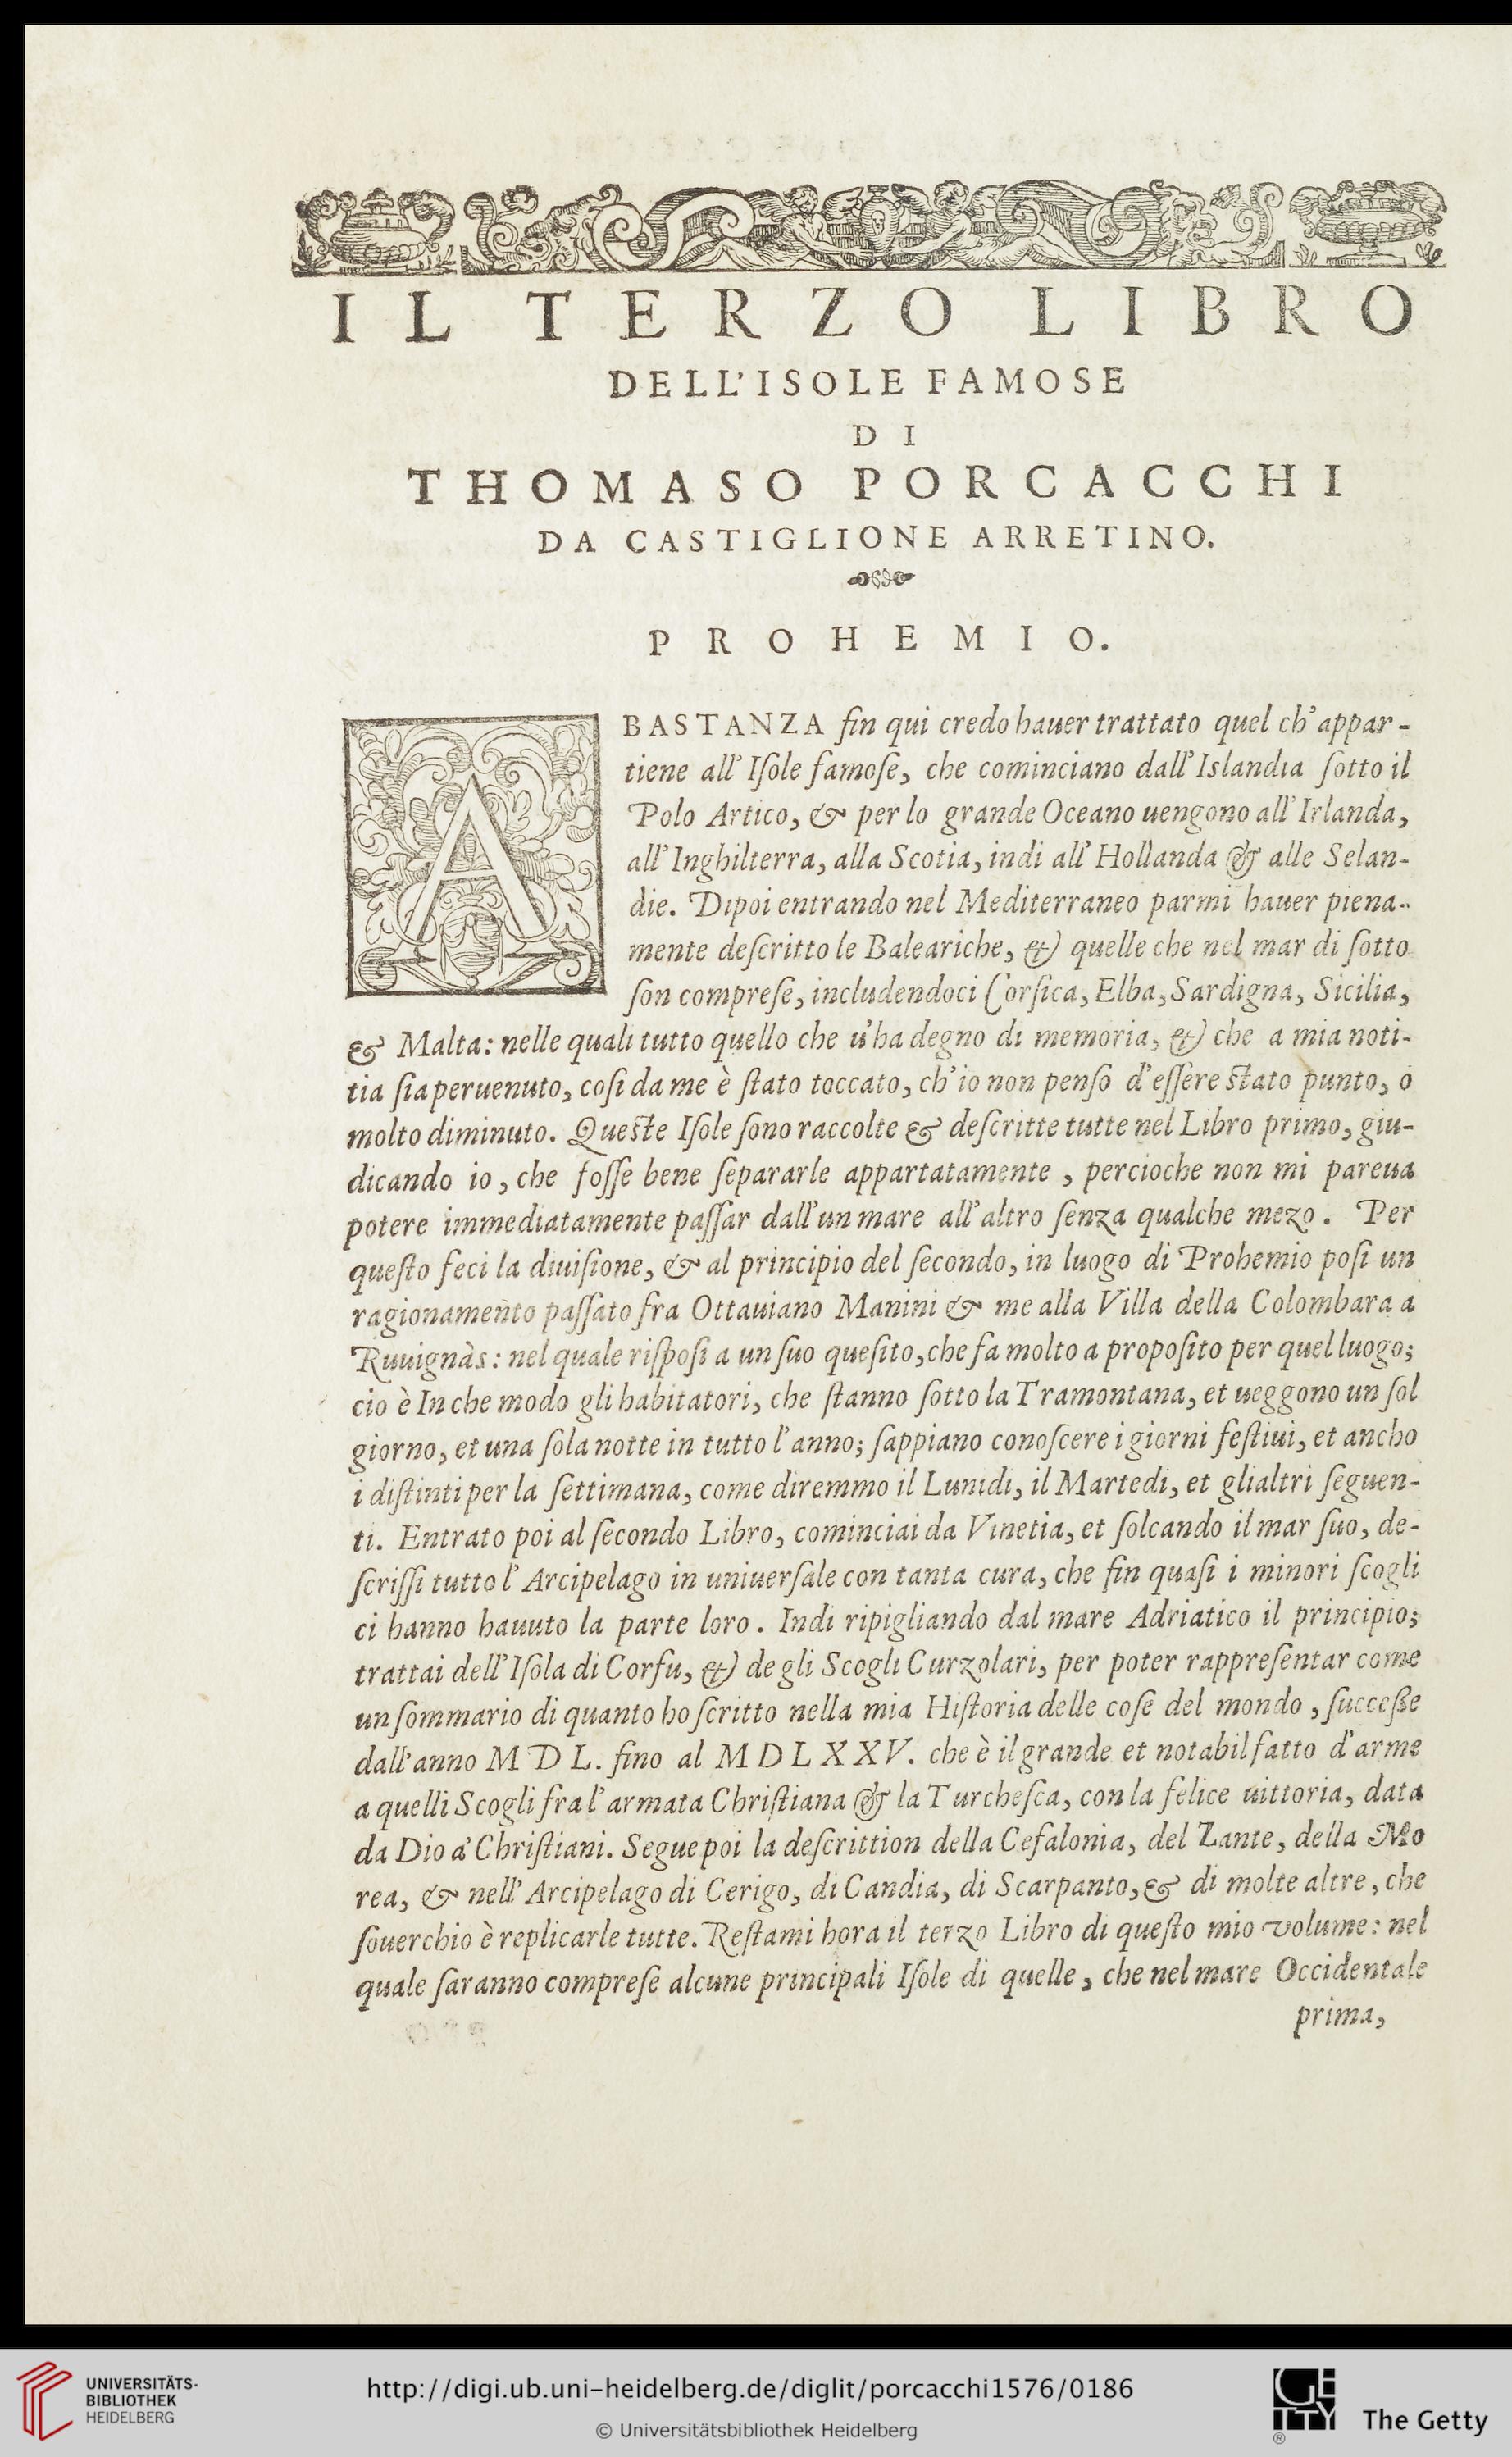 IL TERZO LIBRO
DELL'ISOLE FAMOSE
DI
THOMASO PORCACCHI
DA CASTIGLIONE ARRETINO.
PROHEMIO.
ABASTANZA fin qui credo hauer trattato quel ch'appar-
tiene all'Iſole famoſe, che cominciano dall'Islandia ſotto il
Polo Artico, & per lo grande Oceano uengono all'Irlanda,
all'Inghilterra, alla Scotia, indi all'Hollanda & alle Selan-
die. Dipoi entrando nel Mediterraneo parmi hauer piena-
mente deſcritto le Baleariche, & quelle che nel mar di ſotto
ſon compreſe, includendoci Corſica, Elba, Sardigna, Sicilia,
& Malta: nelle quali tutto quello che u'ha degno di memoria, & che a mia noti-
tia ſia peruenuto, coſi da me è ſtato toccato, ch'io non penſo d'eſſere ſtato punto, o
molto diminuto. Queſte Iſole ſono raccolte & deſcritte tutte nel Libro primo, giu-
dicando io, che foſſe bene ſepararle appartatamente, percioche non mi pareua
potere immediatamente paſſar dall'un mare all'altro ſenza qualche mezo. Per
queſto feci la diuiſione, & al principio del ſecondo, in luogo di Prohemio poſi un
ragionamento paſſato fra Ottauiano Manini & me alla Villa della Colombara a
Ruuignàs: nel quale riſpoſi a un ſuo queſito, che fa molto a propoſito per quel luogo;
cio è In che modo gli habitatori, che ſtanno ſotto la Tramontana, et ueggono un ſol
giorno, et una ſola notte in tutto l'anno; ſappiano conoſcere i giorni feſtiui, et ancho
i diſtinti per la ſettimana, come diremmo il Lunidi, il Martedi, et glialtri ſeguen-
ti. Entrato poi al ſecondo Libro, cominciai da Vinetia, et ſolcando il mar ſuo, de-
ſcriſſi tutto l'Arcipelago in uniuerſale con tanta cura, che fin quaſi i minori ſcogli
ci hanno hauuto la parte loro. Indi ripigliando dal mare Adriatico il principio;
trattai dell'Iſola di Corfu, & de gli Scogli Curzolari, per poter rappreſentar come
un ſommario di quanto ho ſcritto nella mia Hiſtoria delle coſe del mondo, ſucceſſe
dall'anno MDL. fino al MDLXXV. che è il grande et notabil fatto d'arme
a quelli Scogli fra l'armata Chriſtiana & la Turcheſca, con la felice uittoria, data
da Dio a' Chriſtiani. Segue poi la deſcrittion della Cefalonia, del Zante, della Mo
rea, & nell'Arcipelago di Cerigo, di Candia, di Scarpanto, & di molte altre, che
ſouerchio è replicarle tutte. Reſtami hora il terzo Libro di queſto mio volume: nel
quale ſaranno compreſe alcune principali Iſole di quelle, che nel mare Occidentale
prima,
UNIVERSITÄTS-
BIBLIOTHEK
HEIDELBERG
http://digi.ub.uni-heidelberg.de/diglit/porcacchi1576/0186
© Universitätsbibliothek Heidelberg
GETTY
®
The Getty